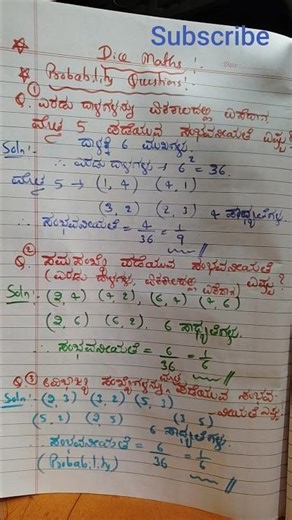 Subscribe
Dice Maths!
Probability Questions!
①
Q. ಎರಡು ದಾಳಗಳನ್ನು ಏಕಕಾಲದಲ್ಲಿ ಎಸೆದಾಗ
ಮೊತ್ತ 5 ಪಡೆಯುವ ಸಂಭವನೀಯತೆ ಎಷ್ಟು?
Soln: ದಾಳಕ್ಕೆ 6 ಮುಖಗಳು.
∴ ಎರಡು ದಾಳಗಳು → 6² = 36.
ಮೊತ್ತ 5 → (1, 4) (4, 1)
(3, 2) (2, 3) 4 ಸಾಧ್ಯತೆಗಳು
∴ ಸಂಭವನೀಯತೆ = 4/36 = 1/9
②
Q. ಸಮಸಂಖ್ಯೆ ಪಡೆಯುವ ಸಂಭವನೀಯತೆ ಎಷ್ಟು?
(ಎರಡು ದಾಳಗಳು, ಏಕಕಾಲದಲ್ಲಿ ಎಸೆದಾಗ)
Soln: (2, 4) (4, 2), (6, 4) (4, 6)
(2, 6) (6, 2). 6 ಸಾಧ್ಯತೆಗಳು.
∴ ಸಂಭವನೀಯತೆ = 6/36 = 1/6
Q ③ ಅವಿಭಾಜ್ಯ ಸಂಖ್ಯೆಗಳನ್ನು ಪಡೆಯುವ ಸಂಭವ-
Soln: (2, 3) (3, 2) (5, 3) ನೀಯತೆ ಎಷ್ಟು.
(5, 2) (2, 5) (3, 5)
6 ಸಾಧ್ಯತೆಗಳು
ಸಂಭವನೀಯತೆ = 6/36 = 1/6
(Probability)